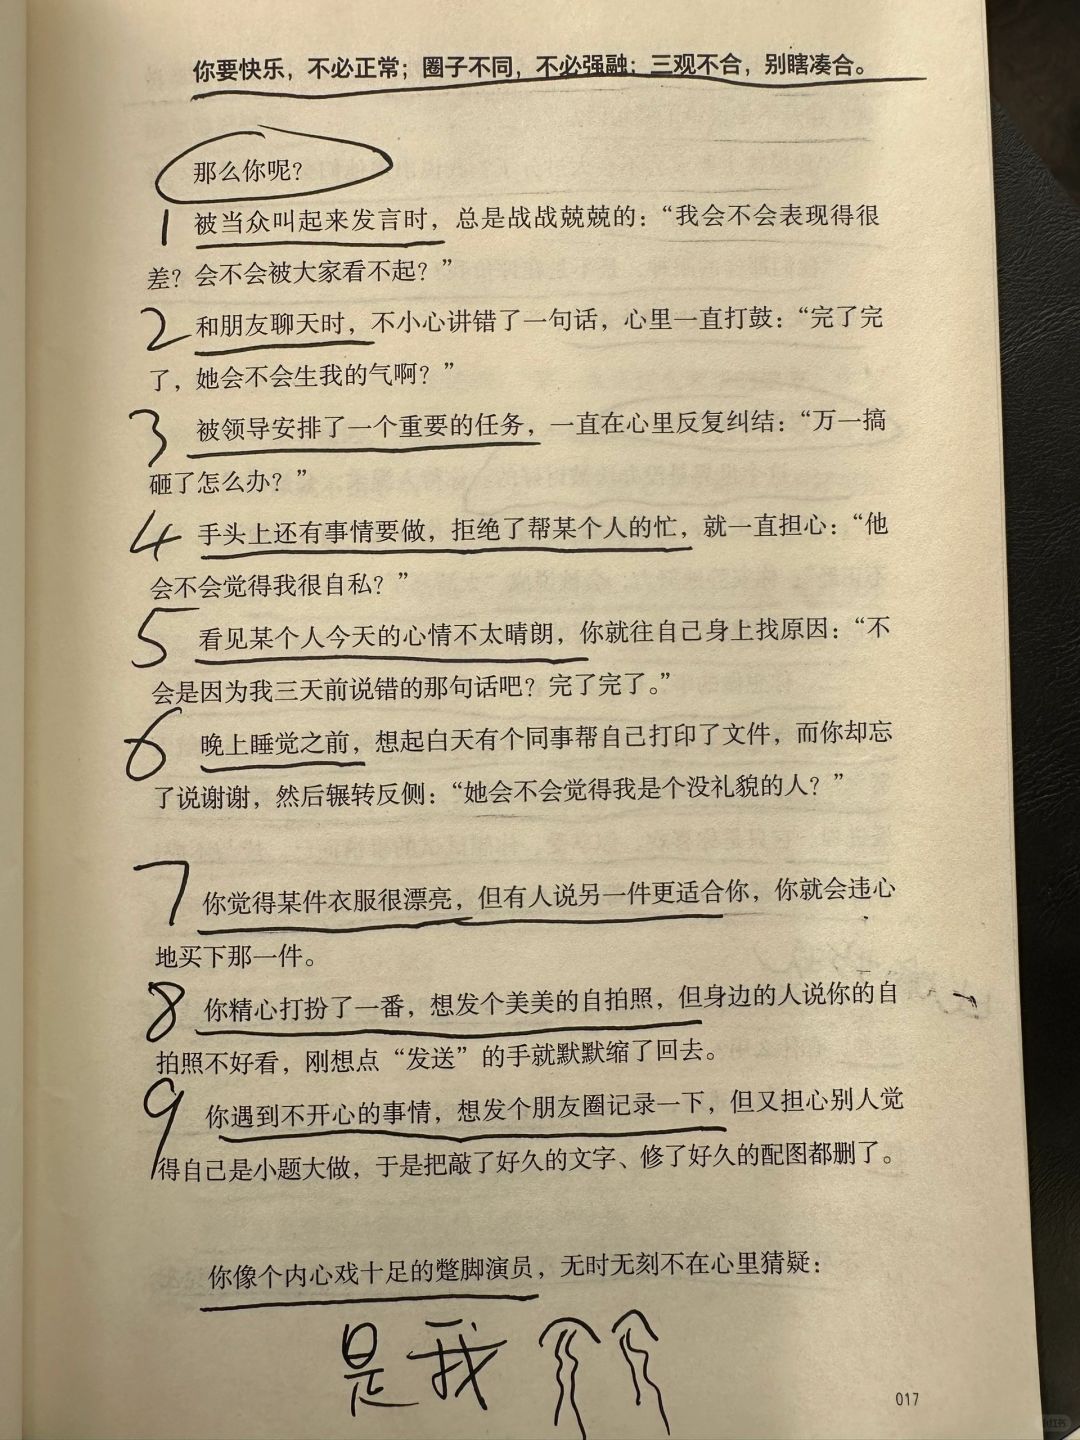 你要快乐，不必正常；圈子不同，不必强融；三观不合，别瞎凑合。
那么你呢？
1 被当众叫起来发言时，总是战战兢兢的：“我会不会表现得很
差？会不会被大家看不起？”
2 和朋友聊天时，不小心讲错了一句话，心里一直打鼓：“完了完
了，她会不会生我的气啊？”
3 被领导安排了一个重要的任务，一直在心里反复纠结：“万一搞
砸了怎么办？”
4 手头上还有事情要做，拒绝了帮某个人的忙，就一直担心：“他
会不会觉得我很自私？”
5 看见某个人今天的心情不太晴朗，你就往自己身上找原因：“不
会是因为我三天前说错的那句话吧？完了完了。”
6 晚上睡觉之前，想起白天有个同事帮自己打印了文件，而你却忘
了说谢谢，然后辗转反侧：“她会不会觉得我是个没礼貌的人？”
7 你觉得某件衣服很漂亮，但有人说另一件更适合你，你就会违心
地买下那一件。
8 你精心打扮了一番，想发个美美的自拍照，但身边的人说你的自
拍照不好看，刚想点“发送”的手就默默缩了回去。
9 你遇到不开心的事情，想发个朋友圈记录一下，但又担心别人觉
得自己是小题大做，于是把敲了好久的文字、修了好久的配图都删了。
你像个内心戏十足的蹩脚演员，无时无刻不在心里猜疑：
是我
017